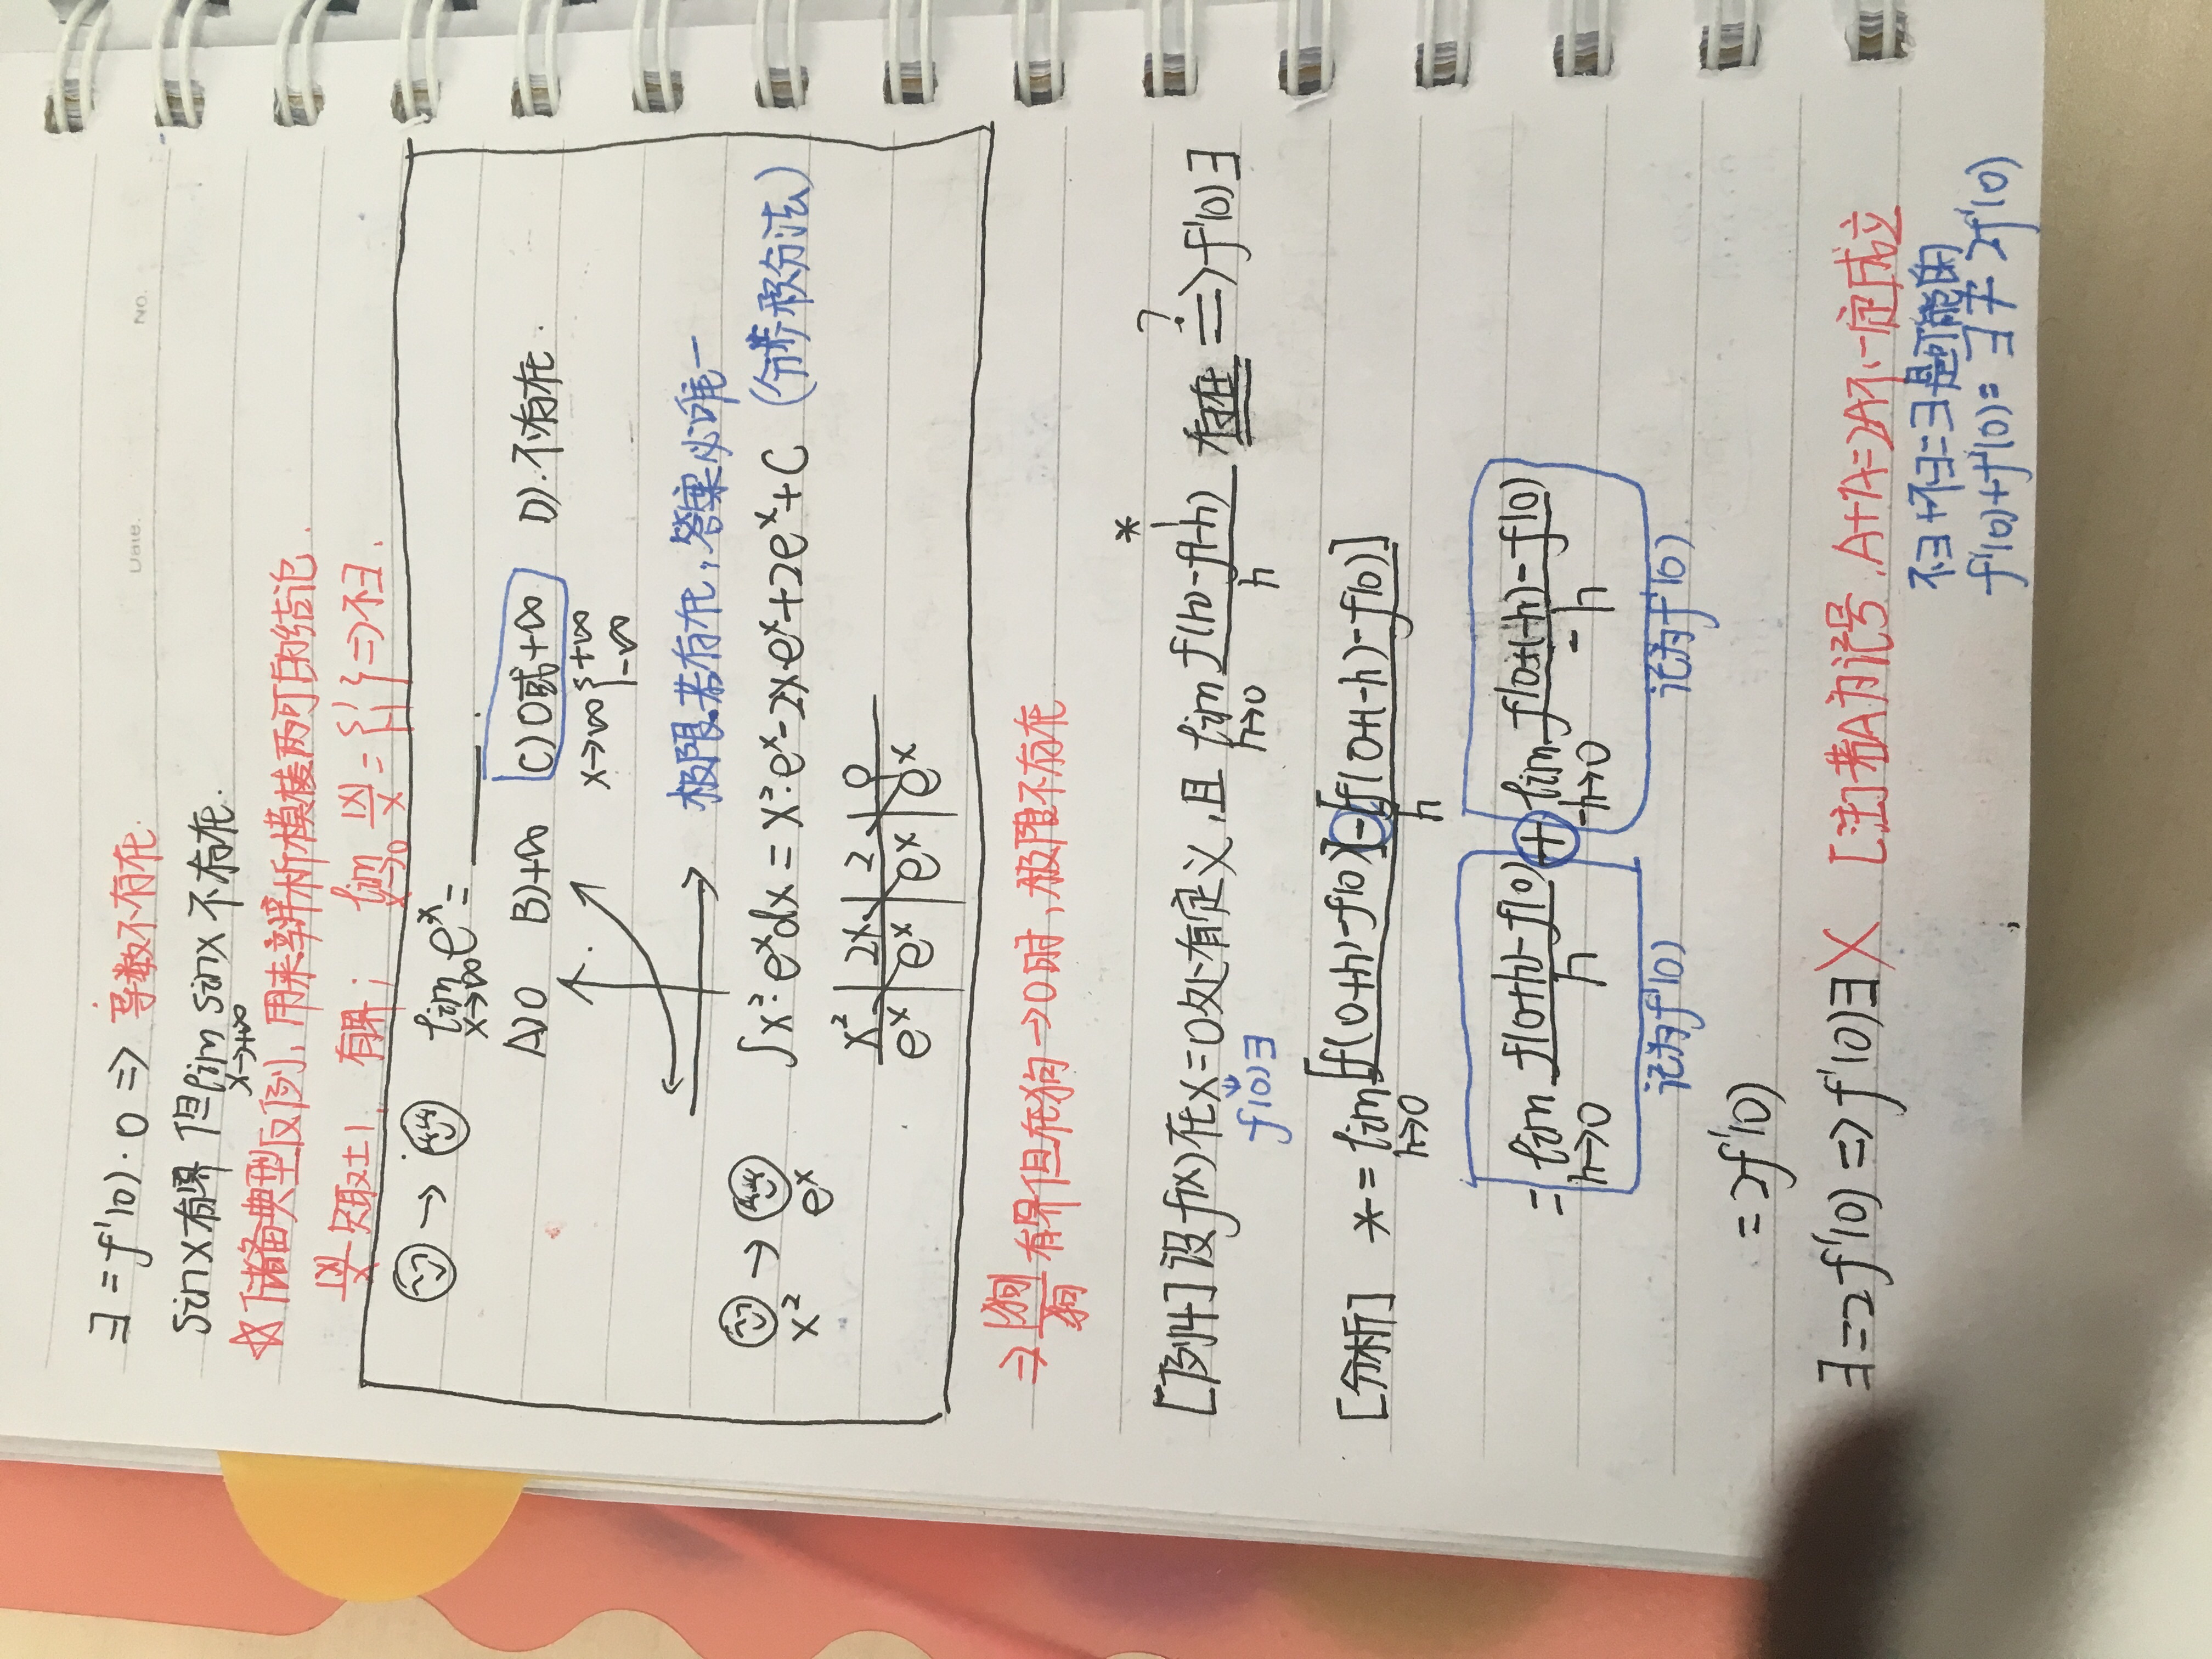 No.
Date.
∃ = f'(0)·0 ⇒ 导数不存在.
sinx有界 但 lim x→+∞ sinx 不存在.
☆ 储备典型反例,用来辨析模棱两可的结论.
|x|/x 只取±1,有界; lim x→0 |x|/x = {1, -1} ⇒ 不∃.
lim x→∞ e^x = ____.
A) 0 B) +∞ C) 0或+∞ D) 不存在.
x→∞ { +∞ -∞
极限若存在,答案必唯一
∫x²·e^x dx = x²·e^x - 2x·e^x + 2e^x + C (分养积分法)
x² e^x
x² | 2x | 2 | 0
e^x | e^x | e^x | e^x
⇒ |狗|/狗 有界但在狗→0时,极限不存在
[例4] 设f(x)在x=0处有定义,且 lim h→0 (f(h)-f(-h))/h 存在 ?⇒ f'(0)∃
*
f(0)∃
[分析] * = lim h→0 ([f(0+h)-f(0)]-[f(0+(-h))-f(0)])/h
= lim h→0 (f(0+h)-f(0))/h + lim -h→0 (f(0+(-h))-f(0))/-h
记为f'(0) 记为f'(0)
= 2f'(0)
∃ = 2f'(0) ⇒ f'(0)∃ X [注]若A为记号,A+A=2A不一定成立
不∃+不∃=∃是可能的
f'(0)+f'(0)=∃≠2f'(0)